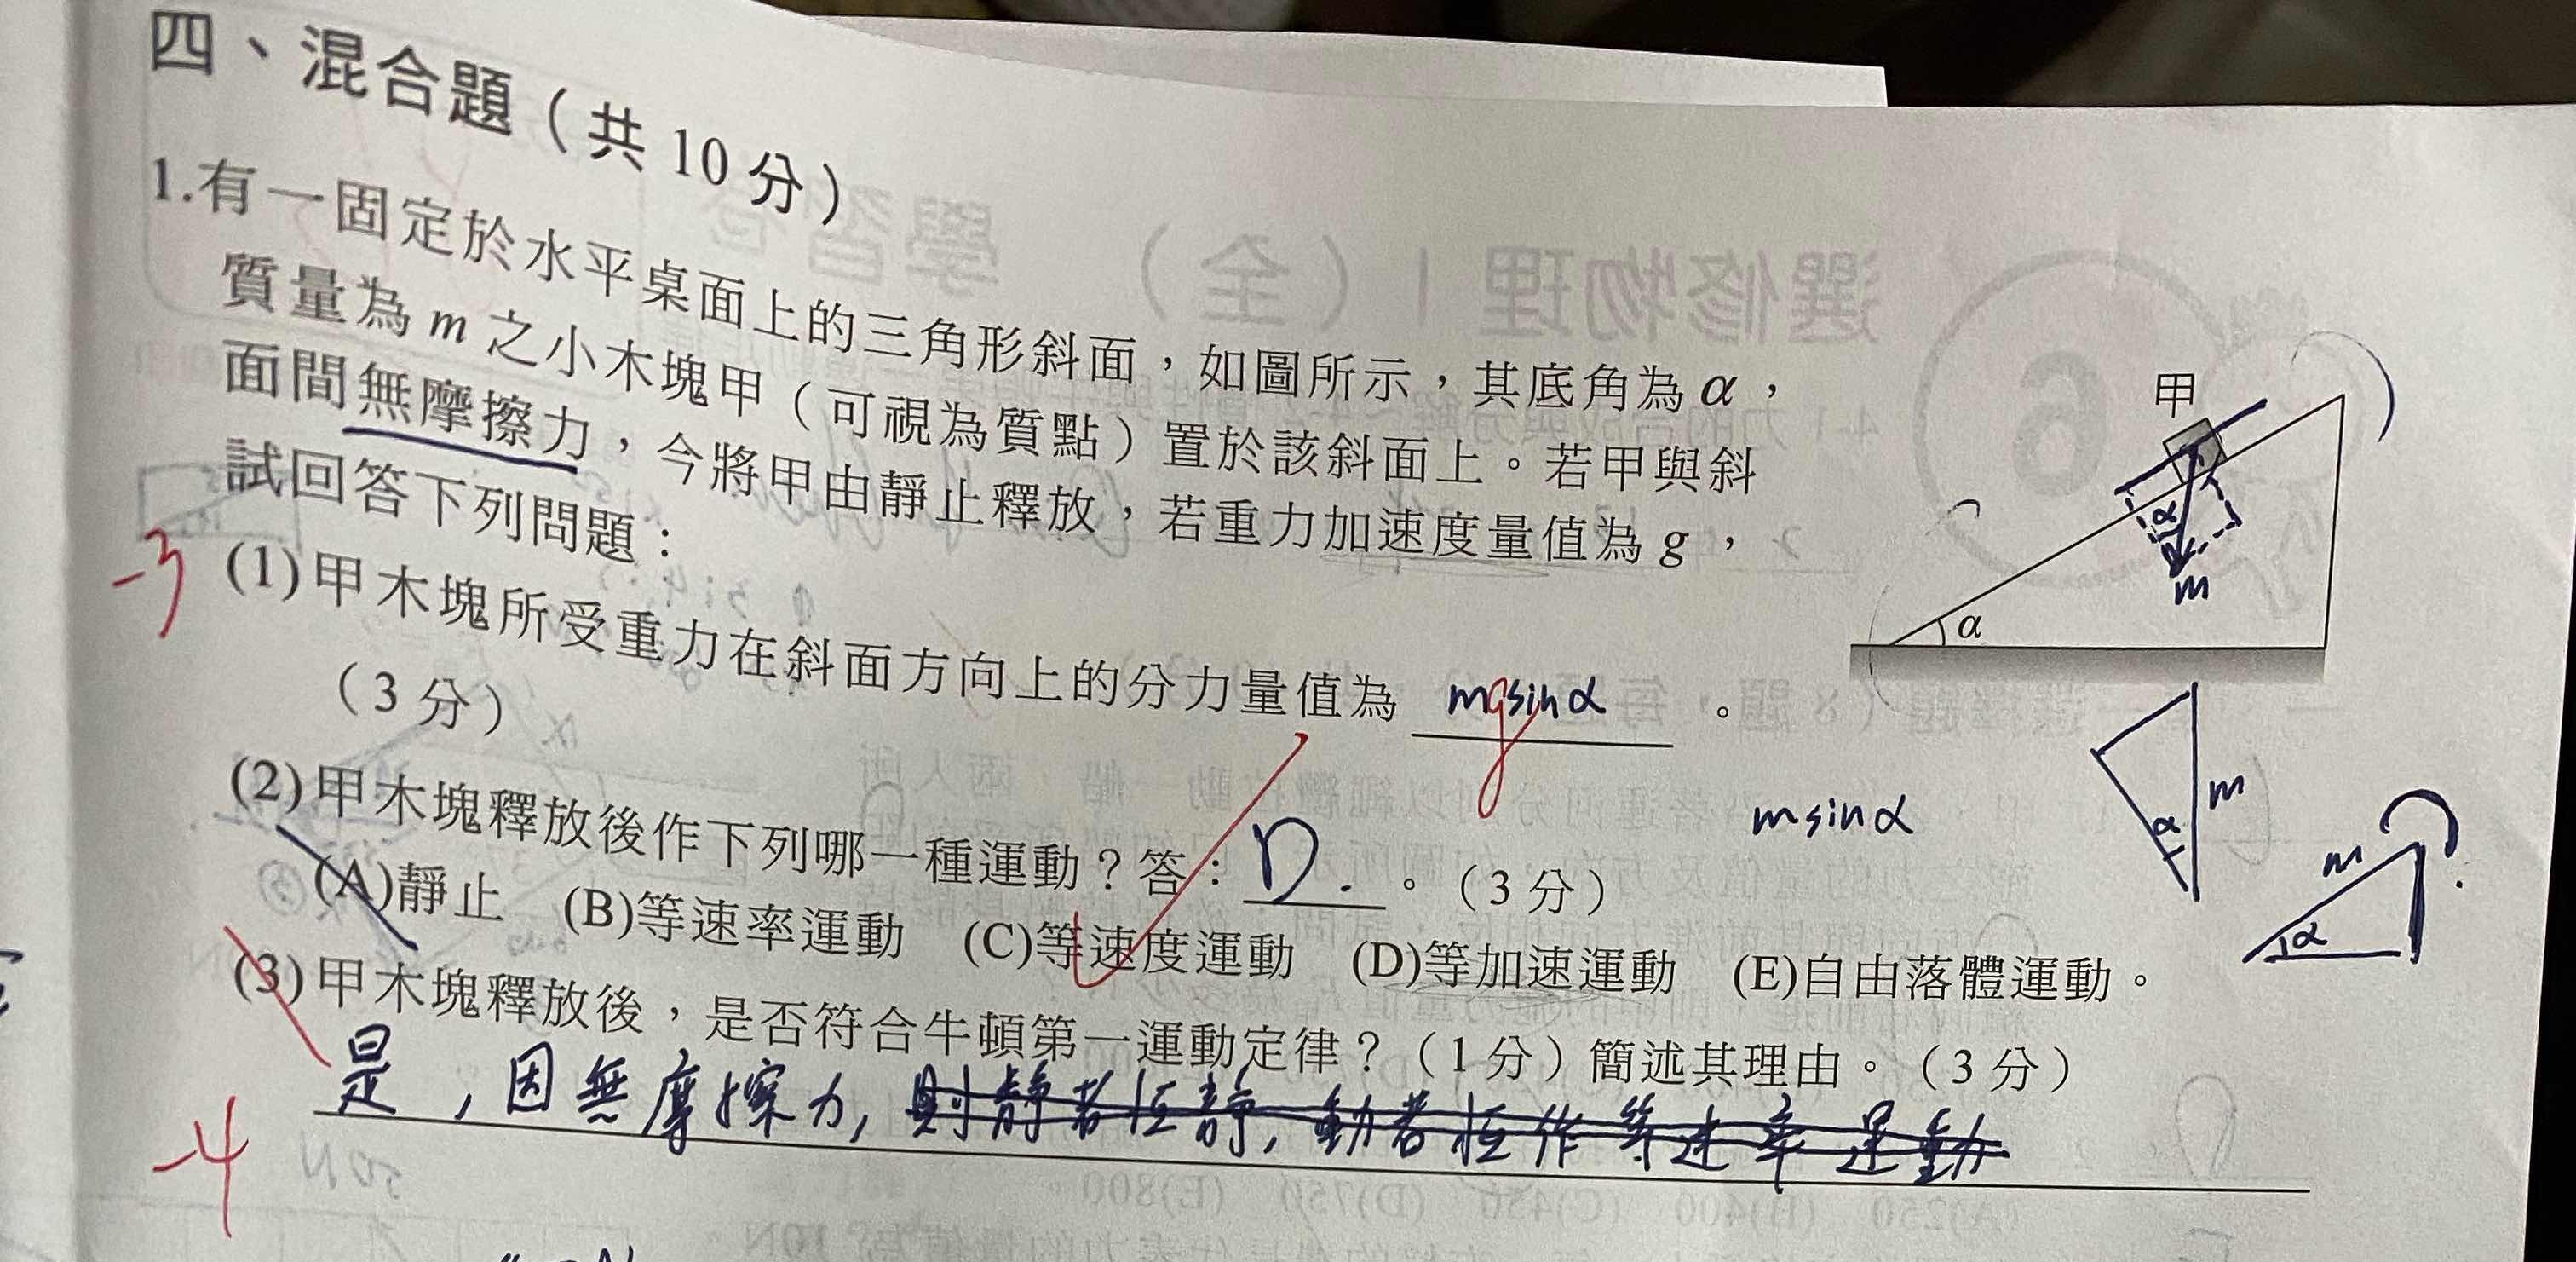 四、混合題（共 10 分）
1.有一固定於水平桌面上的三角形斜面，如圖所示，其底角為α，
質量為 m 之小木塊甲（可視為質點）置於該斜面上。若甲與斜
面間無摩擦力，今將甲由靜止釋放，若重力加速度量值為 g，
試回答下列問題：
甲
α
m
α
-3
(1)甲木塊所受重力在斜面方向上的分力量值為 mgsinα 。
（3 分）
msinα
m
α
m
α
(2)甲木塊釋放後作下列哪一種運動？答：D. 。（3 分）
(A)靜止 (B)等速率運動 (C)等速度運動 (D)等加速運動 (E)自由落體運動。
(3)甲木塊釋放後，是否符合牛頓第一運動定律？（1 分）簡述其理由。（3 分）
是，因無摩擦力，則靜者恆靜，動者恆作等速率運動
-4